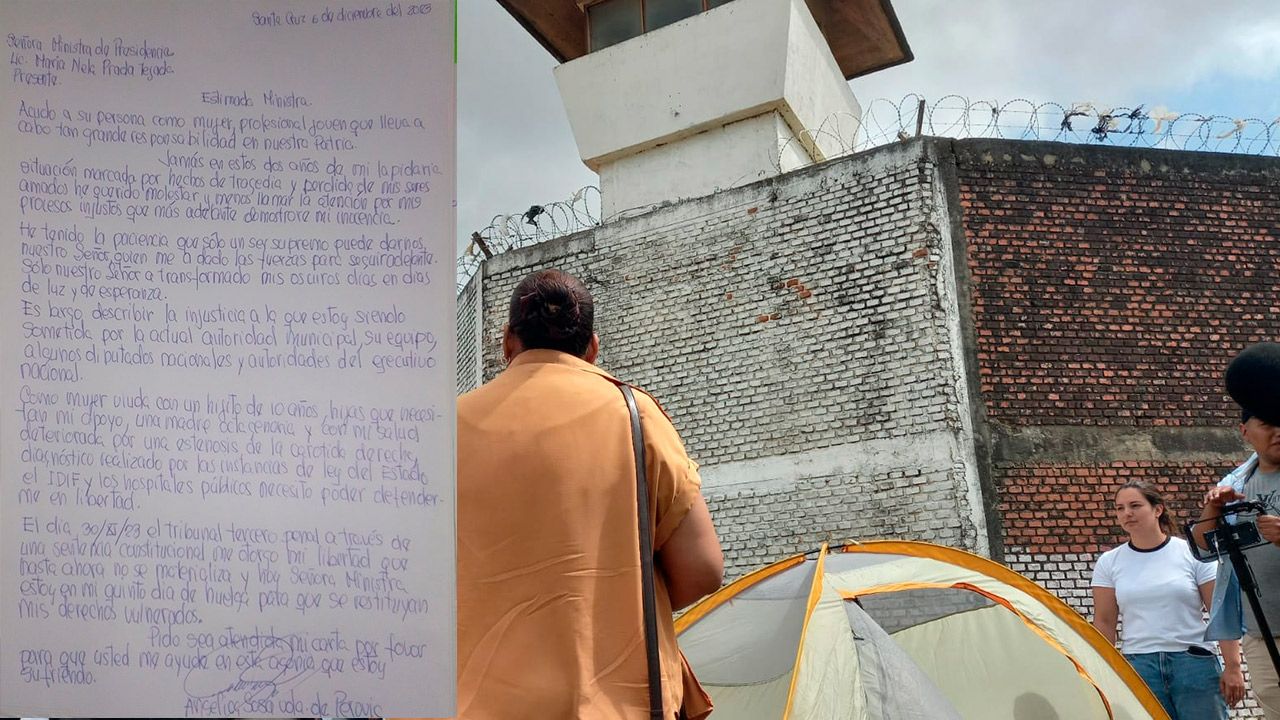 Santa Cruz 6 de diciembre del 2023
Señora Ministra de Presidencia
Lic. María Nela Prada Tejada.
Presente.
Estimada Ministra.
Acudo a su persona como mujer, profesional joven que lleva a
cabo tan grande responsabilidad en nuestra Patria.
Jamás en estos dos años de mi lapidaria
situación marcada por hechos de tragedia y perdida de mis seres
amados he querido molestar y menos llamar la atención por mis
procesos injustos que más adelante demostrare mi inocencia.
He tenido la paciencia que sólo un ser supremo puede darnos,
nuestro Señor quien me a dado las fuerzas para seguir adelante.
Sólo nuestro Señor a transformado mis oscuros días en días
de luz y de esperanza.
Es largo describir la injusticia a la que estoy siendo
sometida por la actual autoridad municipal, su equipo,
algunos diputados nacionales y autoridades del ejecutivo
nacional.
Como mujer viuda con un hijito de 10 años, hijas que necesi-
tan mi apoyo, una madre octagenaria y con mi salud
deteriorada por una estenosis de la carotida derecha,
diagnóstico realizado por las instancias de ley del Estado
el IDIF y los hospitales públicos necesito poder defender-
me en libertad.
El día 30/XI/23 el tribunal tercero penal a través de
una sentencia constitucional me otorgo mi libertad que
hasta ahora no se materializa y hoy Señora Ministra
estoy en mi quinto día de huelga para que se restituyan
mis derechos vulnerados.
Pido sea atendida mi carta por favor
para que usted me ayude en esta agonía que estoy
sufriendo.
Angélica Sosa vda. de Perovic